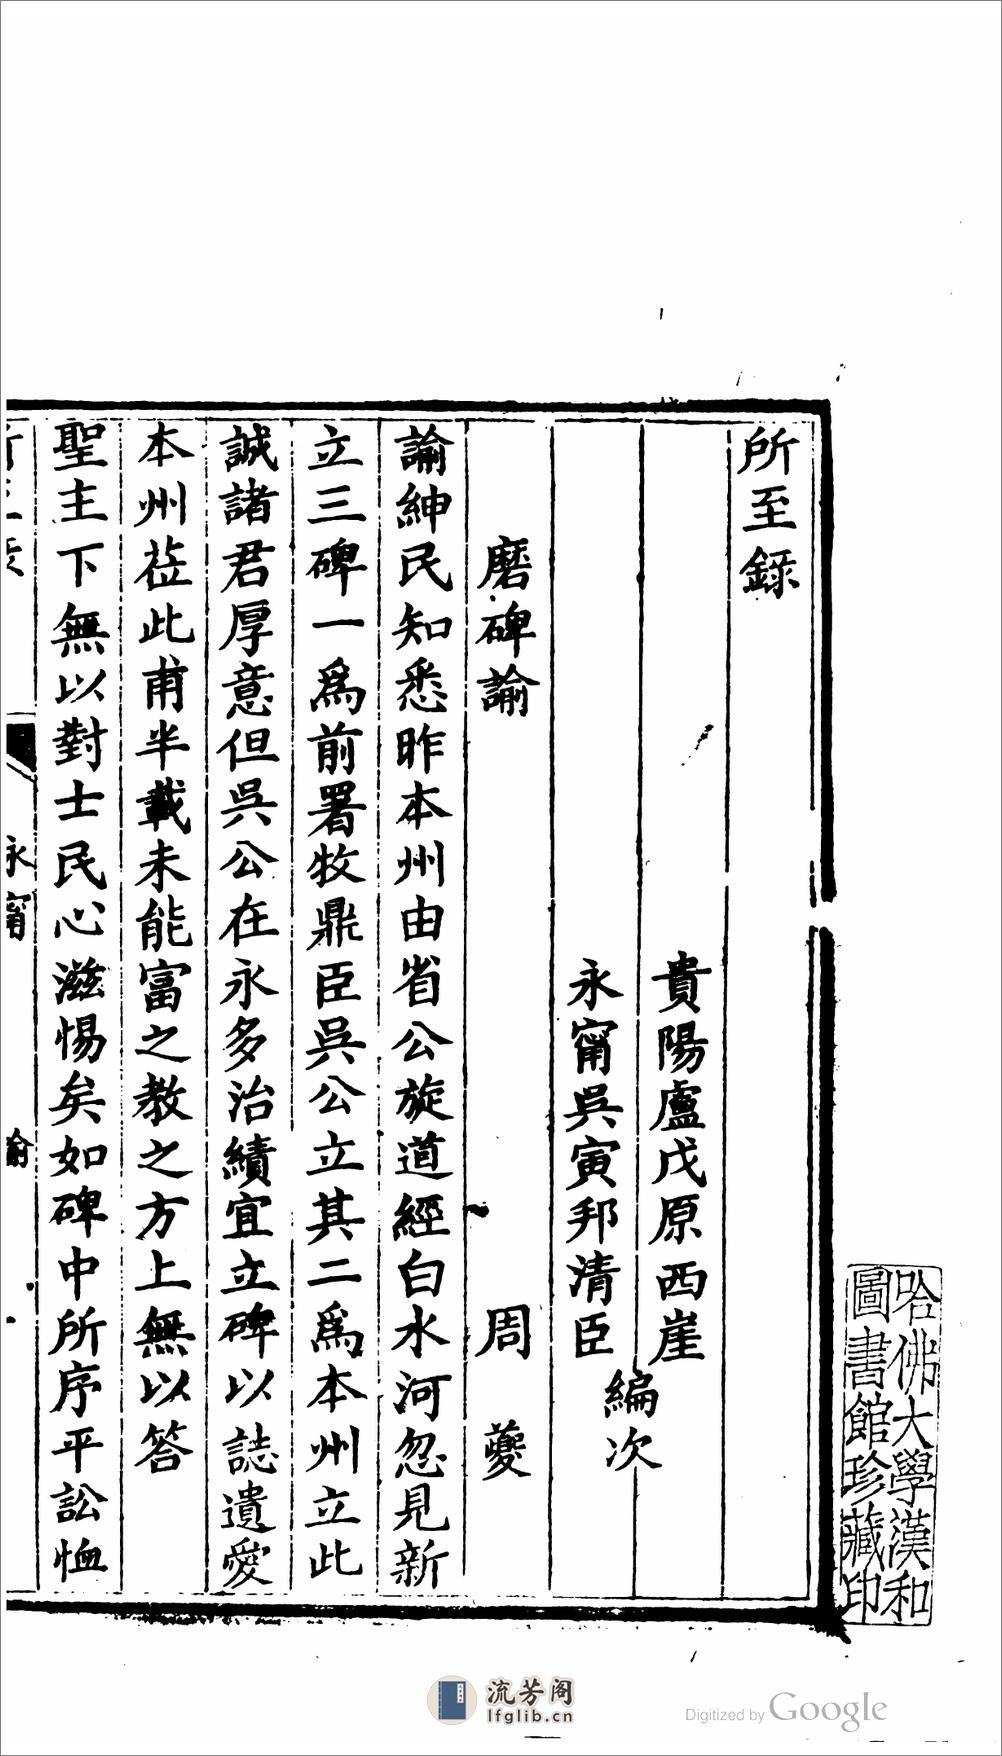 所至錄
貴陽盧戊原西崖
永甯吳寅邦清臣
編次
磨碑諭　周夔
諭紳民知悉昨本州由省公旋道經白水河忽見新
立三碑一爲前署牧鼎臣吳公立其二爲本州立此
誠諸君厚意但吳公在永多治績宜立碑以誌遺愛
本州莅此甫半載未能富之教之方上無以答
聖主下無以對士民心滋惕矣如碑中所序平訟恤
永甯
諭
哈佛大學漢和
圖書館珍藏印
流芳阁
lfglib.cn
Digitized by Google